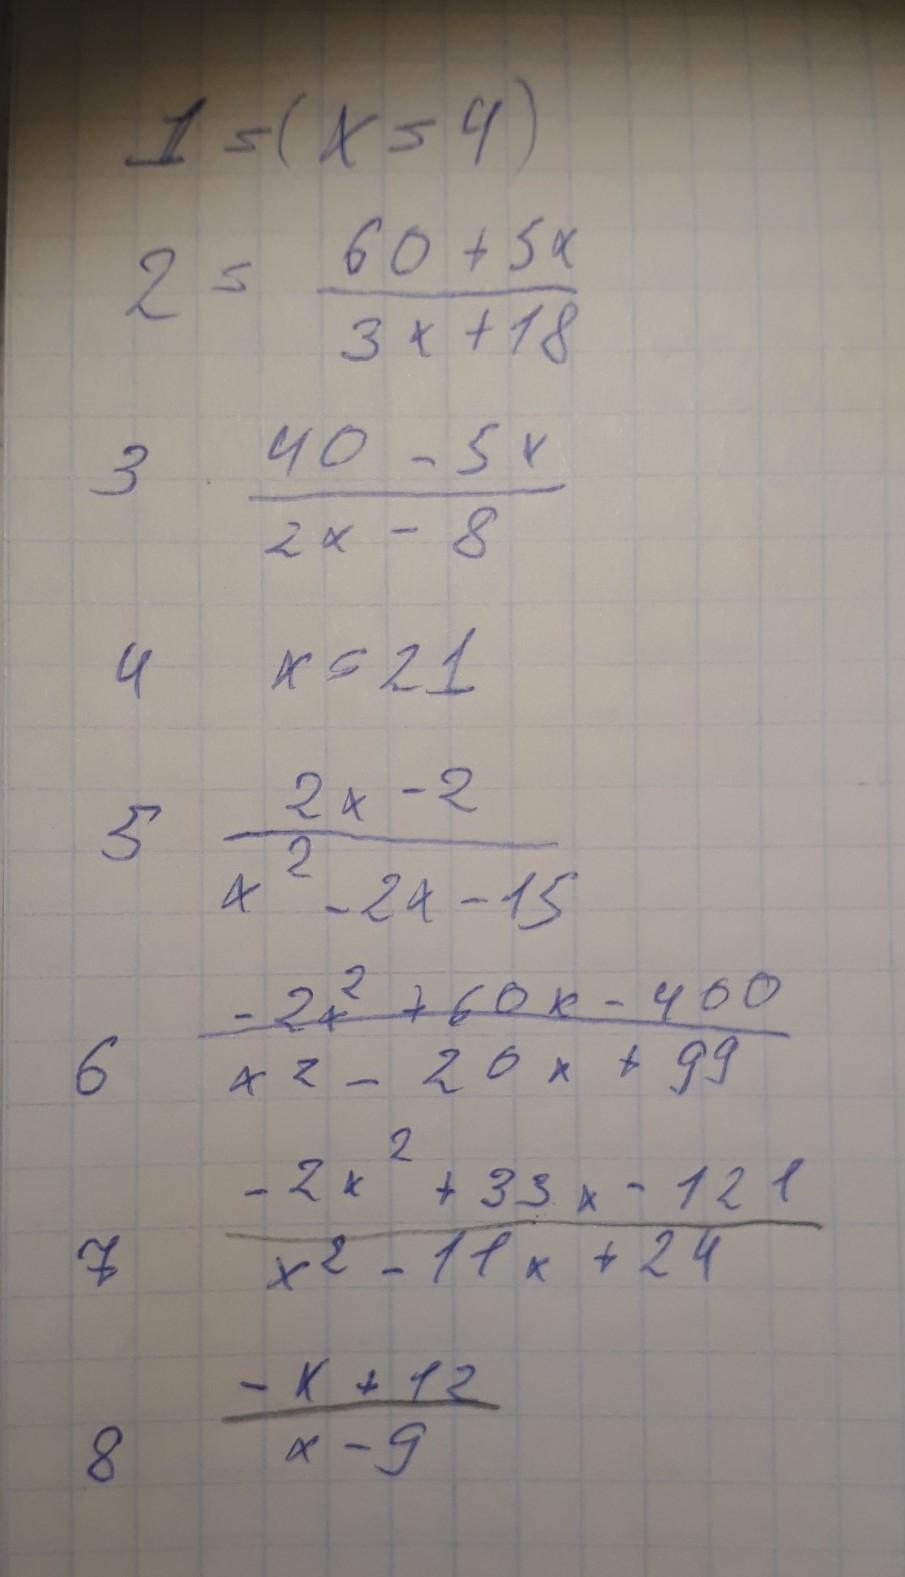 1 = (x = 4)
2 = 60 + 5x
3x + 18
3 40 - 5x
2x - 8
4 x = 21
5 2x - 2
x² - 2x - 15
6 -2x² + 60x - 400
x² - 20x + 99
7 -2x² + 33x - 121
x² - 11x + 24
8 -x + 12
x - 9